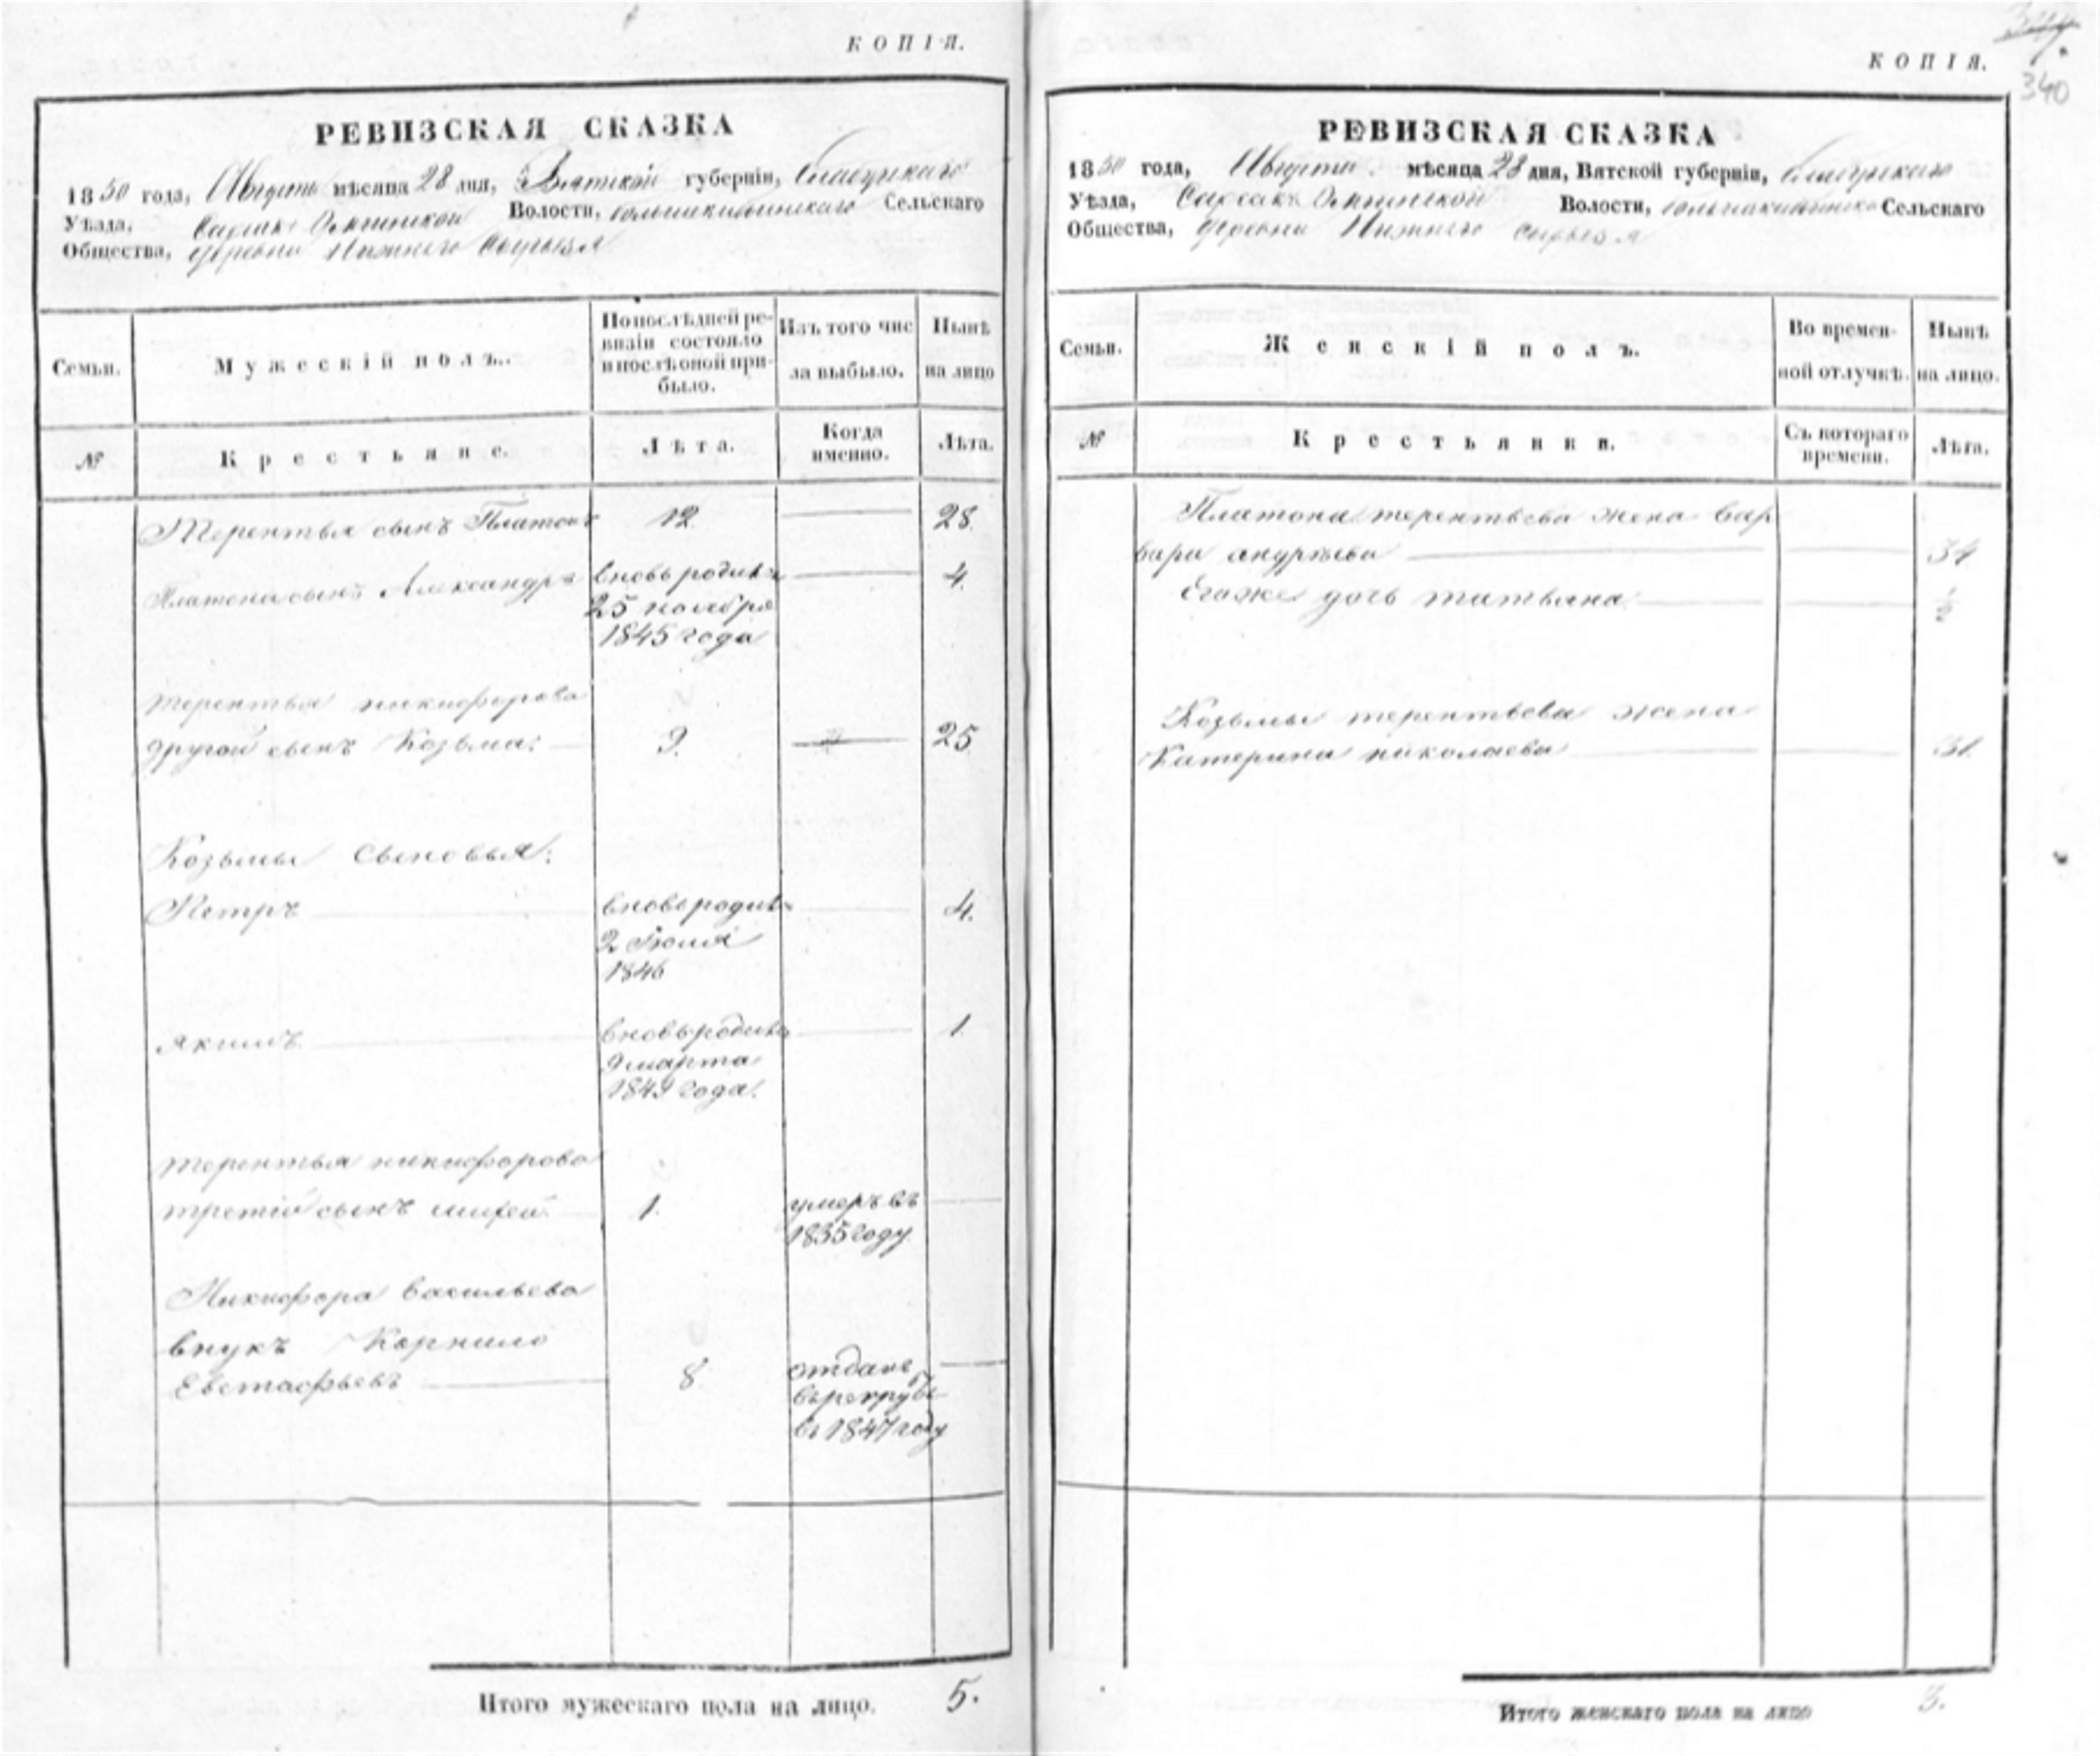 КОПІЯ.
РЕВИЗСКАЯ СКАЗКА
1850 года, Августа мѣсяца 28 дня, Вятской губерніи, Елабужскаго
Уѣзда, Сарсакъ Омгинской Волости, Сельскаго
Общества, деревни Нижнего Сырьеза
Семьи. Мужескій полъ. По послѣдней ре- Изъ того чис Нынѣ
визіи состояло
и послѣ оной при- ла выбыло. на лицо
было.
№ Крестьяне. Лѣта. Когда Лѣта.
именно.
Терентья сынъ Платонъ 12 28.
Платона сынъ Александръ вновь родив. 4.
25 ноября
1845 года
Терентья никифорова
другой сынъ Козьма: 9. 25
Козьмы сыновья:
Петръ вновь родив. 4.
2 Іюля
1846
якимъ вновь родив. 1.
9 марта
1849 года.
терентья никифорова
третій сынъ 1. умеръ въ
1835 году.
Никифора васильева
внукъ Корнило
Евстафьевъ 8. отданъ
въ рекруты
въ 1847 году
Итого мужескаго пола на лицо. 5.
340
КОПІЯ.
РЕВИЗСКАЯ СКАЗКА
1850 года, Августа мѣсяца 28 дня, Вятской губерніи, Елабужскаго
Уѣзда, Сарсакъ Омгинской Волости, Сельскаго
Общества, деревни Нижнего Сырьеза
Семьи. Женскій полъ. Во времен- Нынѣ
ной отлучкѣ. на лицо.
№ Крестьянки. Съ котораго Лѣта.
времени.
Платона терентьева жена Вар
вара андрѣева 34
Егоже дочь татьяна ½
Козьмы терентьева жена
Катерина николаева 31.
Итого женскаго пола на лицо 3.